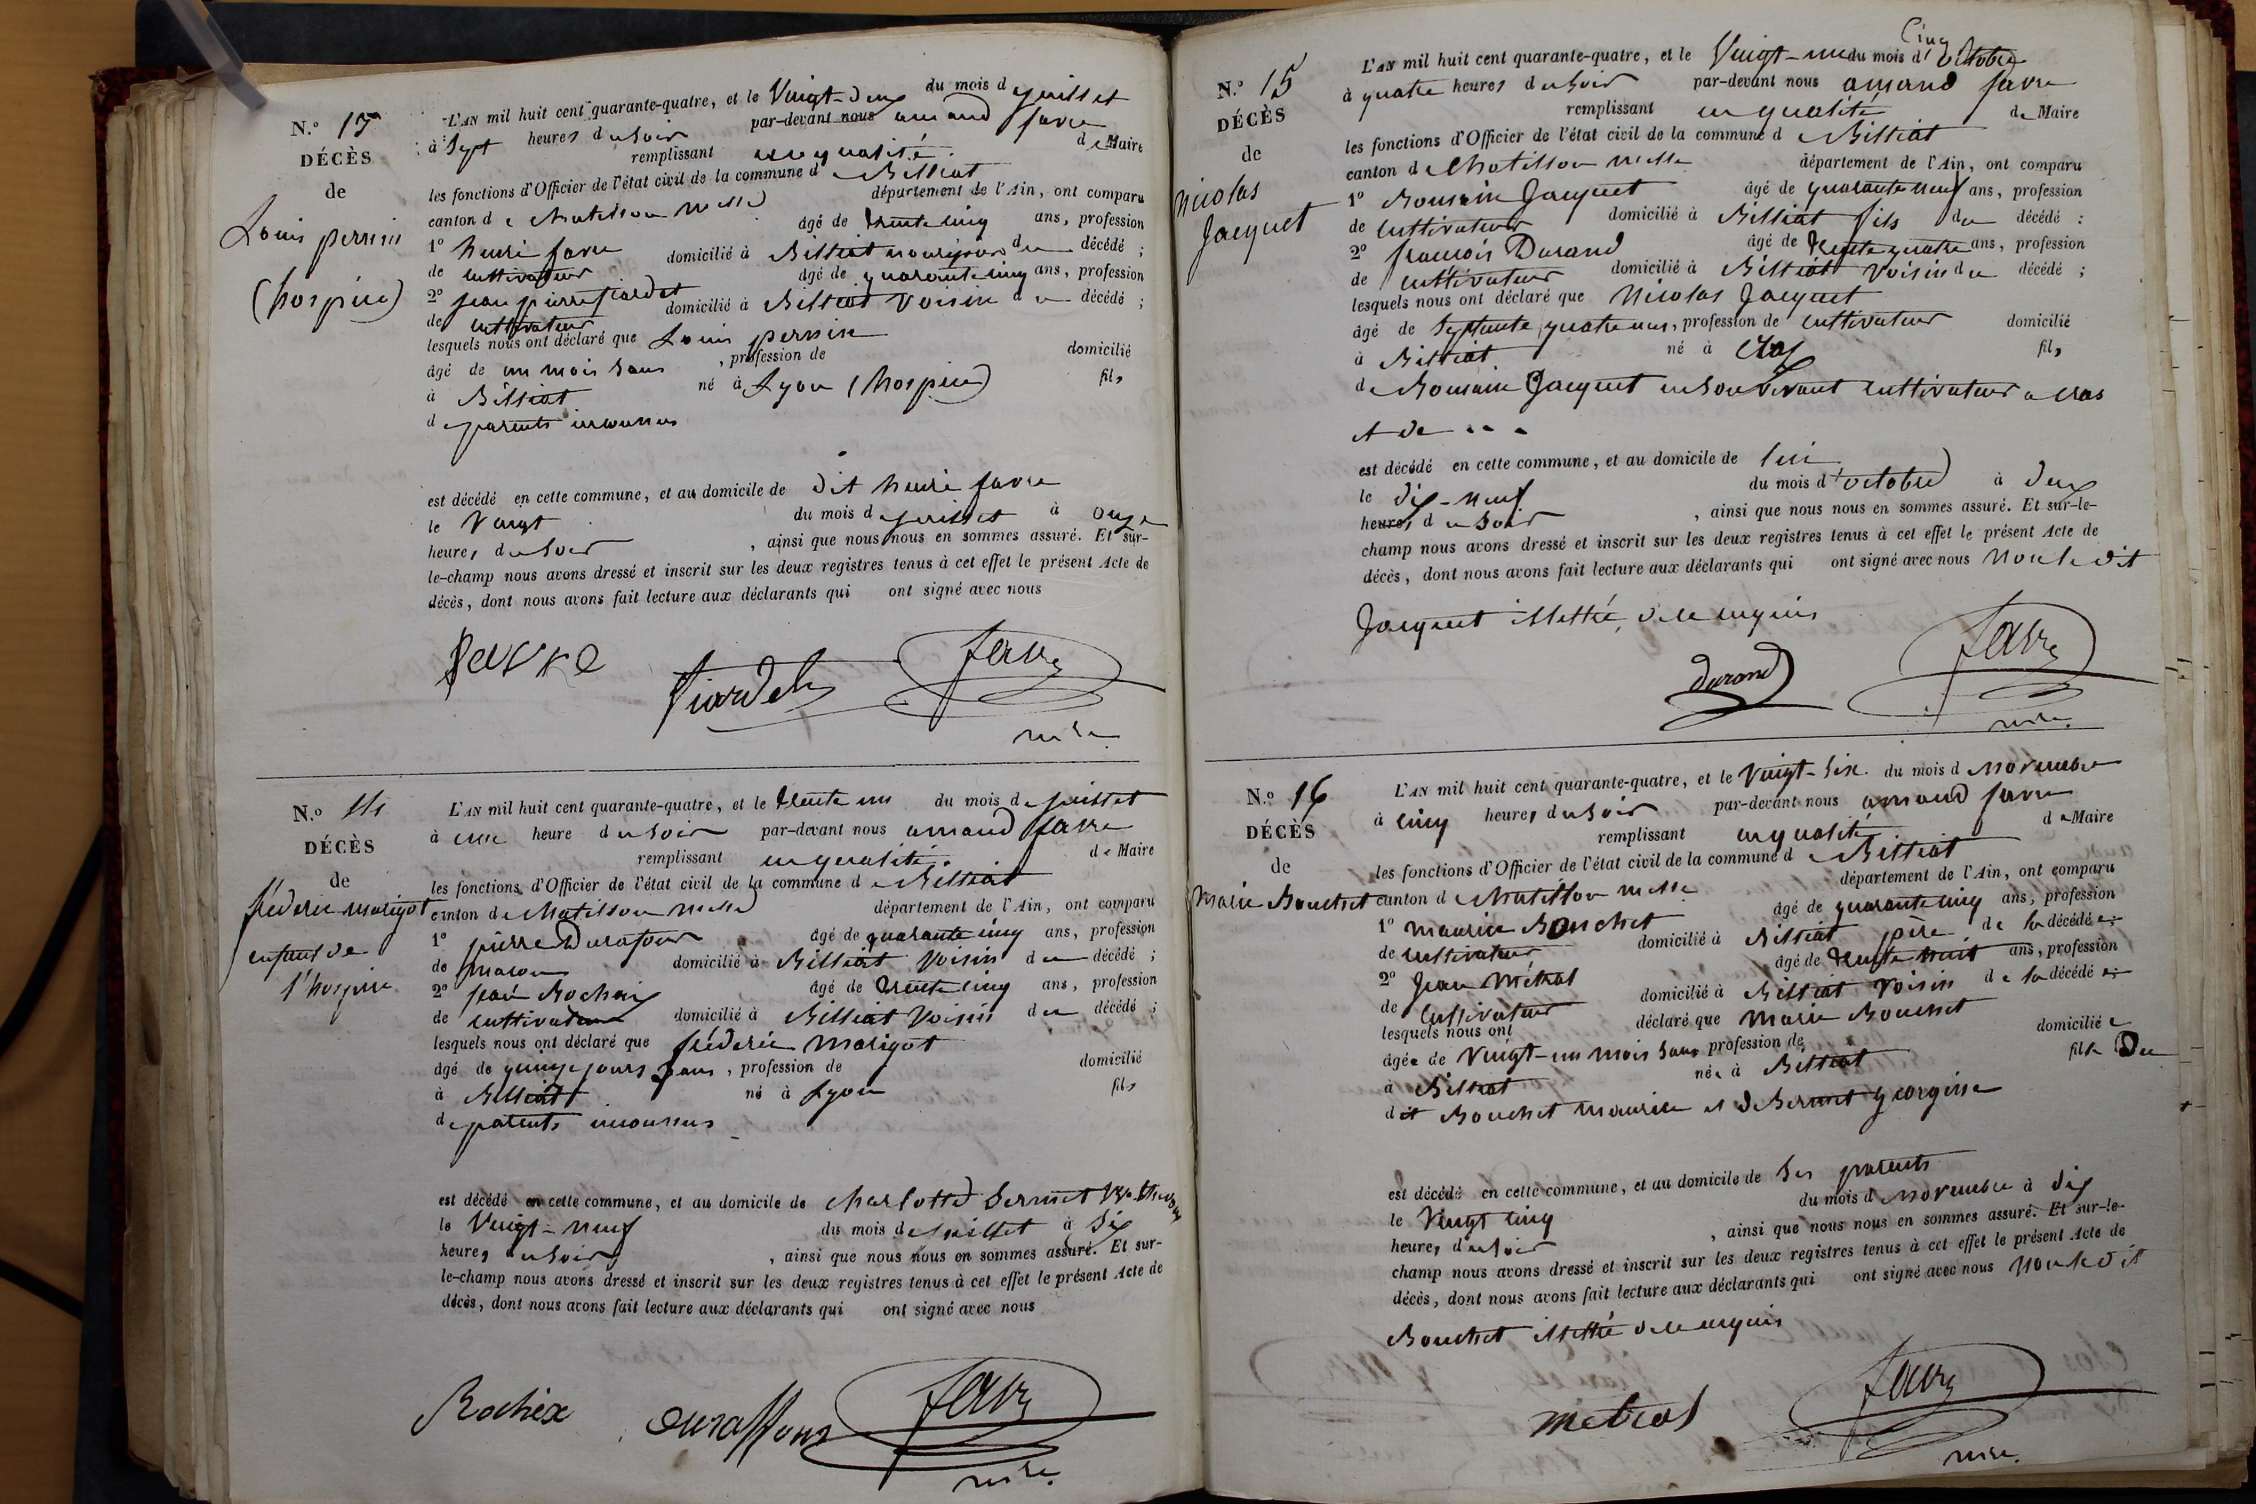 N.º 13
DÉCÈS
de
Louis perrin
(hospice)
L'AN mil huit cent quarante-quatre, et le Vingt-deux du mois de juillet
à Sept heures du Soir par-devant nous amand favre
remplissant en qualité de Maire
les fonctions d'Officier de l'état civil de la commune de Billiat
canton de Chatillon département de l'Ain, ont comparu
1º henri favre âgé de trente cinq ans, profession
de cultivateur domicilié à Billiat nourisson du décédé ;
2º jean pierre âgé de quarante cinq ans, profession
de cultivateur domicilié à Billiat Voisin du décédé ;
lesquels nous ont déclaré que Louis perrin
âgé de un mois sans , profession de domicilié
à Billiat né à Lyon (hospice) fils
de parents inconnus
est décédé en cette commune, et au domicile de dit henri favre
le Vingt du mois de juillet à onze
heures du Soir , ainsi que nous nous en sommes assuré. Et sur-
le-champ nous avons dressé et inscrit sur les deux registres tenus à cet effet le présent Acte de
décès, dont nous avons fait lecture aux déclarants qui ont signé avec nous
favre
N.º 14
DÉCÈS
de
fréderic marigot
enfant de
l'hospice
L'AN mil huit cent quarante-quatre, et le trente un du mois de juillet
à une heure du Soir par-devant nous amand favre
remplissant en qualité de Maire
les fonctions d'Officier de l'état civil de la commune de Billiat
canton de Chatillon département de l'Ain, ont comparu
1º pierre Durafour âgé de quarante cinq ans, profession
de macon domicilié à Billiat Voisin du décédé ;
2º jean Rochaix âgé de trente cinq ans, profession
de cultivateur domicilié à Billiat Voisin du décédé ;
lesquels nous ont déclaré que fréderic marigot
âgé de quinze jours sans , profession de domicilié
à Billiat né à Lyon fils
de parents inconnus
est décédé en cette commune, et au domicile de charlotte Sermet
le Vingt-neuf du mois de Juillet à Six
heures du Soir , ainsi que nous nous en sommes assuré. Et sur-
le-champ nous avons dressé et inscrit sur les deux registres tenus à cet effet le présent Acte de
décès, dont nous avons fait lecture aux déclarants qui ont signé avec nous
Rochex Duraffour favre
N.º 15
DÉCÈS
de
nicolas
Jacquet
Cinq
L'AN mil huit cent quarante-quatre, et le Vingt-un du mois d'octobre
à quatre heures du Soir par-devant nous amand favre
remplissant en qualité de Maire
les fonctions d'Officier de l'état civil de la commune de Billiat
canton de Chatillon département de l'Ain, ont comparu
1º Romain Jacquet âgé de quarante neuf ans, profession
de cultivateur domicilié à Billiat fils du décédé ;
2º francois Durand âgé de trente quatre ans, profession
de cultivateur domicilié à Billiat Voisin du décédé ;
lesquels nous ont déclaré que Nicolas Jacquet
âgé de Septante quatre ans, profession de cultivateur domicilié
à Billiat né à Cras fils
de Romain Jacquet en son Vivant cultivateur a cras
et de
est décédé en cette commune, et au domicile de lui
le dix-neuf du mois d'octobre à deux
heures du Soir , ainsi que nous nous en sommes assuré. Et sur-le-
champ nous avons dressé et inscrit sur les deux registres tenus à cet effet le présent Acte de
décès, dont nous avons fait lecture aux déclarants qui ont signé avec nous non le dit
Jacquet illettré de ce enquis
Durand favre
N.º 16
DÉCÈS
de
Marie Bouchet
L'AN mil huit cent quarante-quatre, et le Vingt-Six du mois de Novembre
à cinq heures du Soir par-devant nous amand favre
remplissant en qualité de Maire
les fonctions d'Officier de l'état civil de la commune de Billiat
canton de Chatillon département de l'Ain, ont comparu
1º maurice Bouchet âgé de quarante cinq ans, profession
de cultivateur domicilié à Billiat père de la décédée ;
2º Jean Métral âgé de trente huit ans, profession
de Cultivateur domicilié à Billiat Voisin de la décédée
lesquels nous ont déclaré que Marie Bouchet
âgée de Vingt-un mois sans profession de domiciliée
à Billiat née à Billiat fille Du
dit Bouchet maurice et de Sermet georgine
est décédé en cette commune, et au domicile de Ses parents
le Vingt cinq du mois de Novembre à dix
heures du Soir , ainsi que nous nous en sommes assuré. Et sur-le-
champ nous avons dressé et inscrit sur les deux registres tenus à cet effet le présent Acte de
décès, dont nous avons fait lecture aux déclarants qui ont signé avec nous non le dit
Bouchet illettré de ce enquis
metral favre